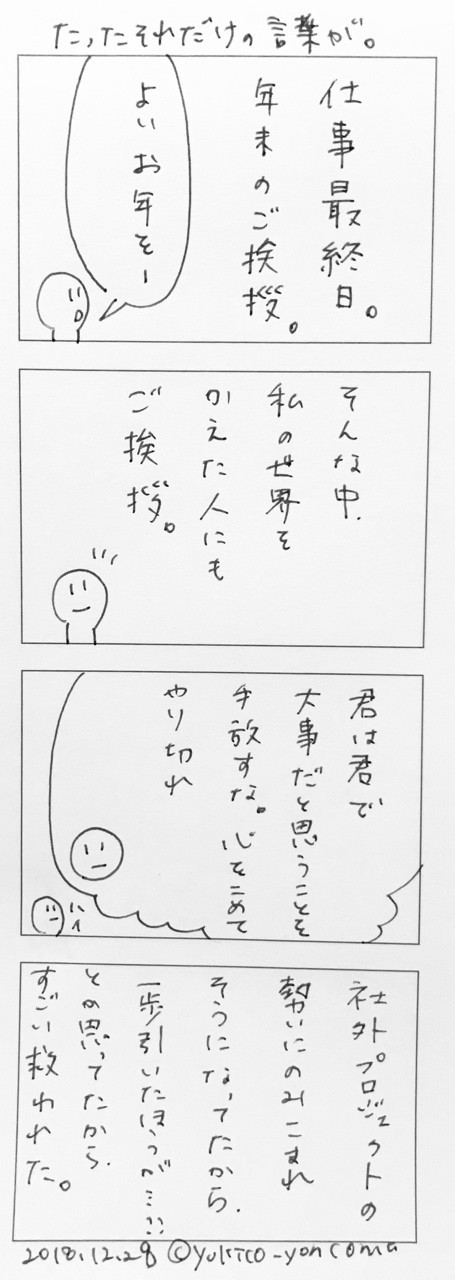 たったそれだけの言葉が。
仕事最終日。
年末のご挨拶。
よいお年をー
そんな中、
私の世界を
かえた人にも
ご挨拶。
君は君で
大事だと思うことを
手放すな。心をこめて
やり切れ
ハイ
社外プロジェクトの
勢いにのみこまれ
そうになってたから、
一歩引いたほうが…!!
とか思ってたから、
すごい救われた。
2018.12.28 ©yukico-yoncoma